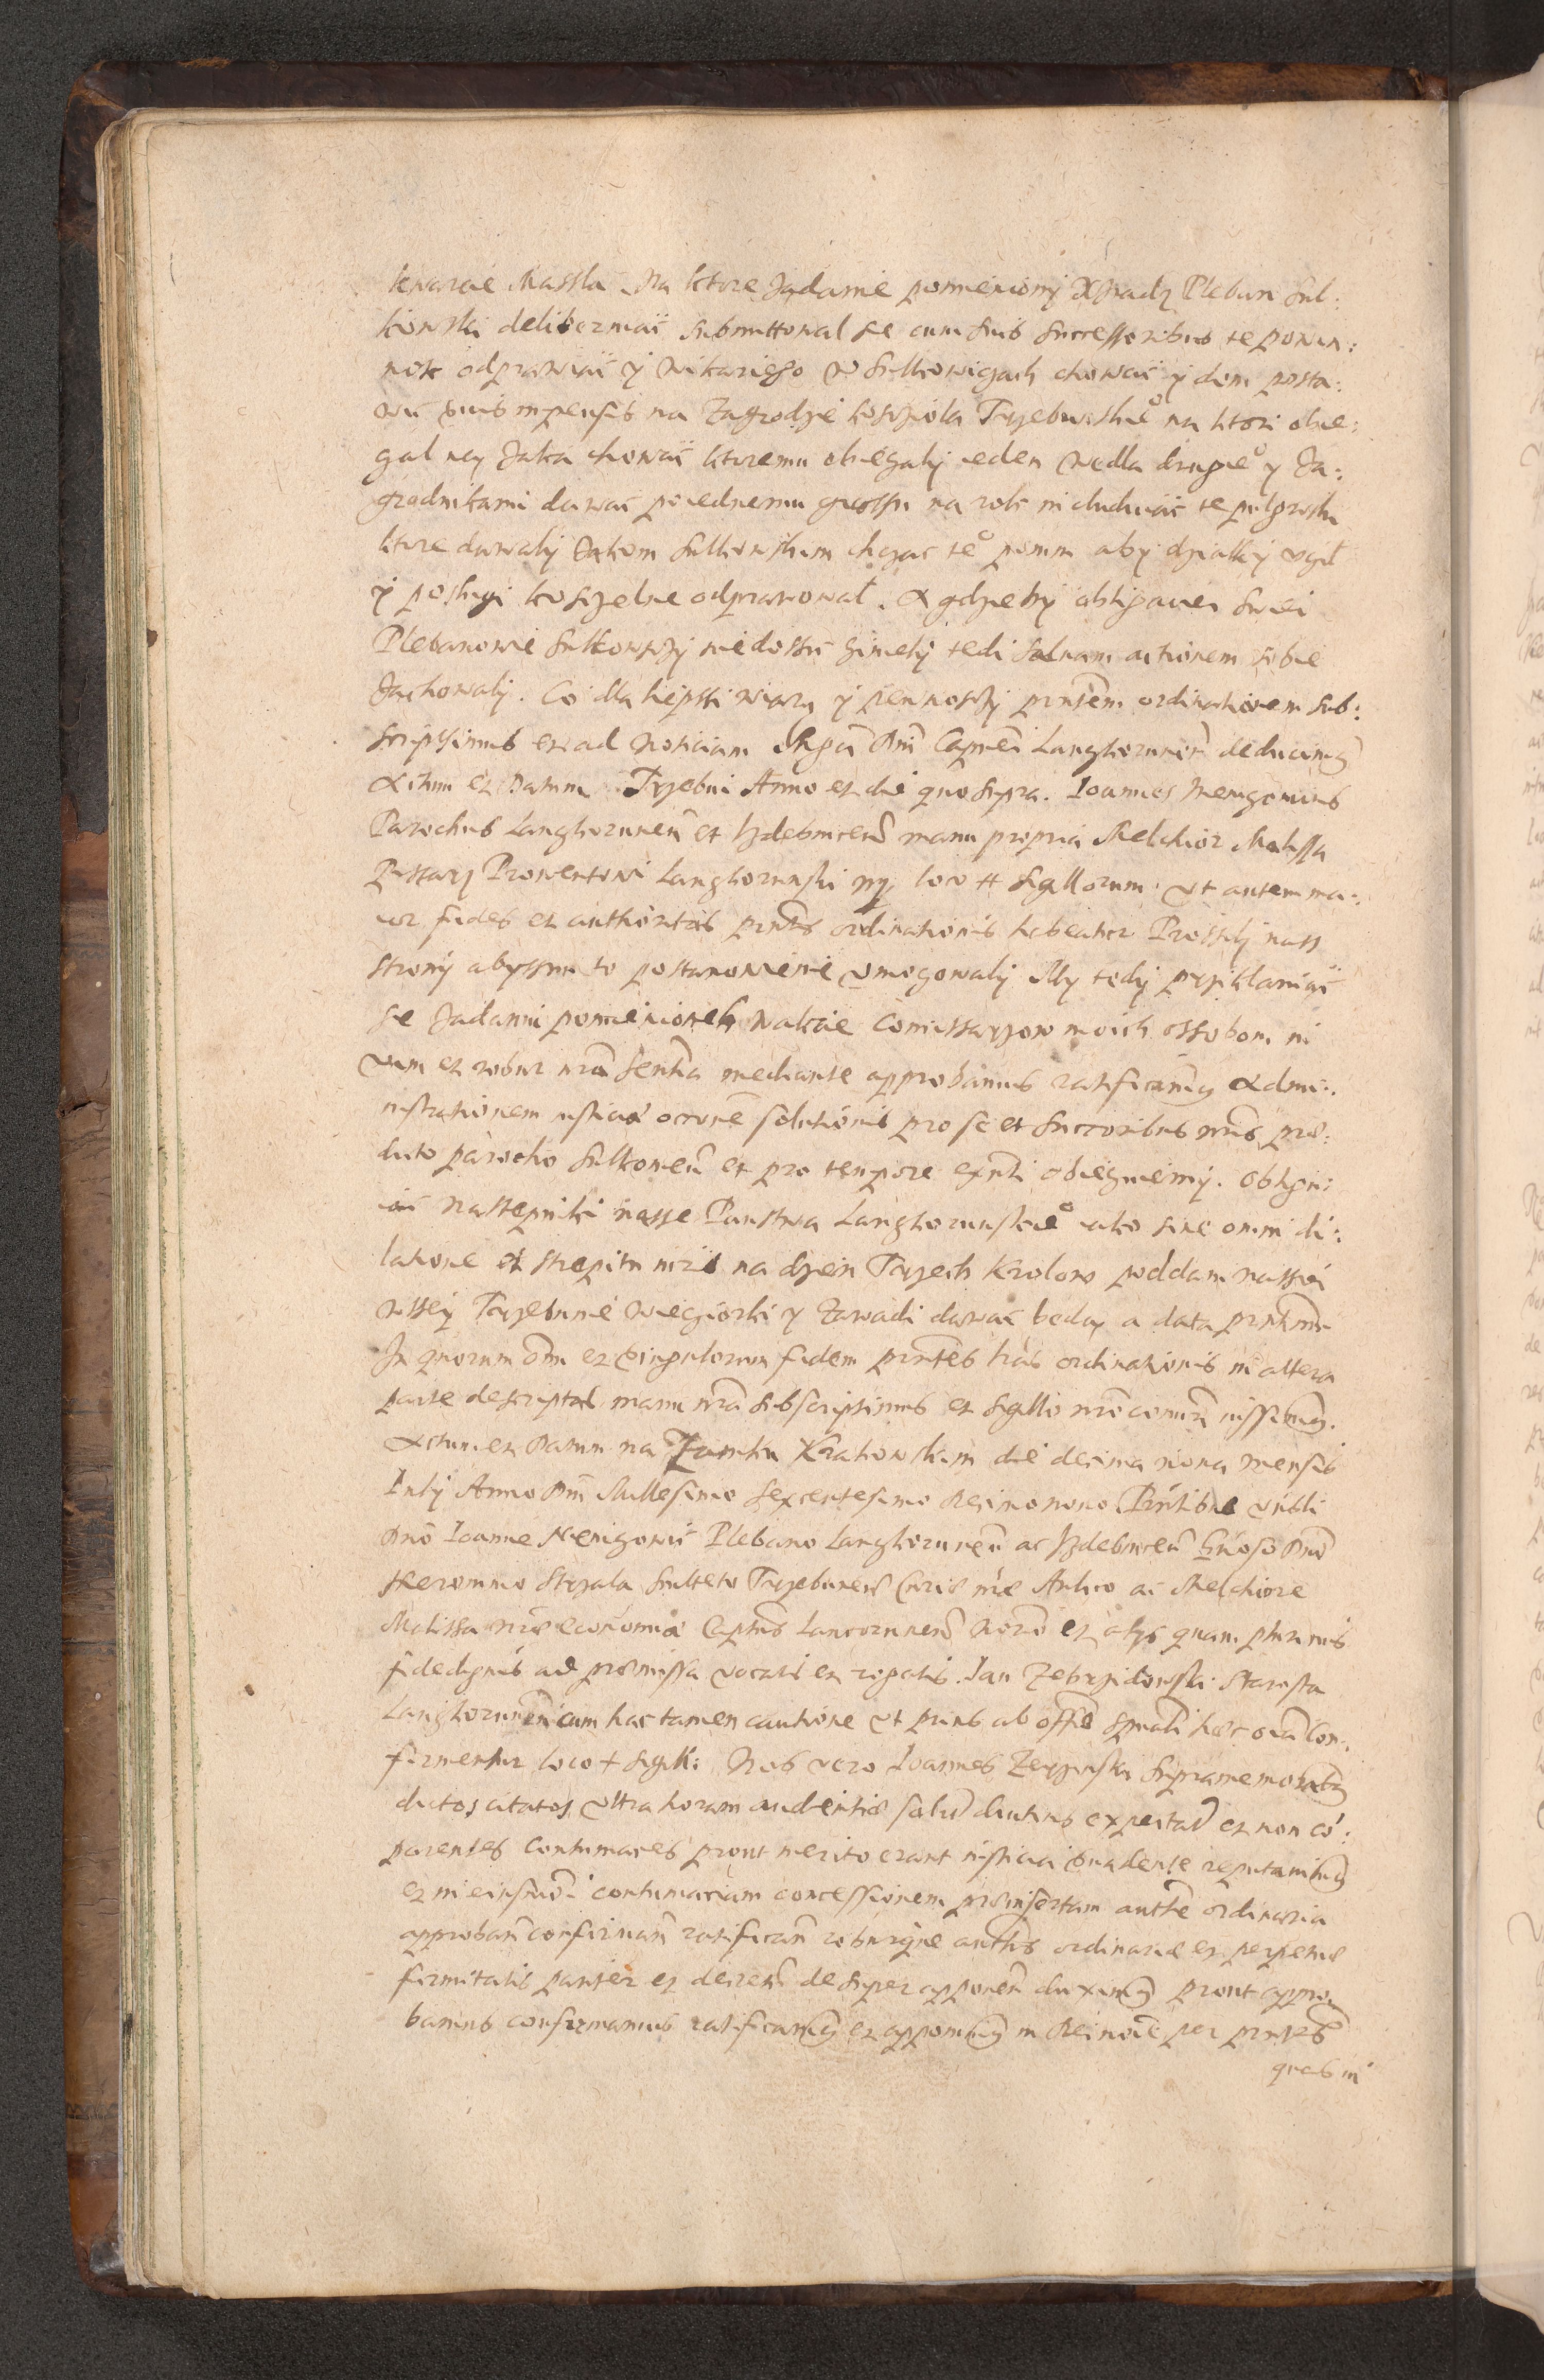 kwarcie Massla. Na ktore Ządanie pomieniony Xsiadz Pleban Sul:
kowski deliberuiać submittowal sie cum suis Successoribus te powin:
nosc odprawiać y wikariego w Sulkowiczach chowac y dom posta:
wic suis inpensis na Zagrodzie kosciola Trzebunskie° na ktori obie:
gal ney Zaka chowac ktoremu obiegaly ieden wedla drugie° y Za:
grodnikami dawac poiednemu groszu na rok includuiac te pulgrosku
ktore dawaly Zakom Sulkowskim chcąc te° pomni aby dziatki vczil
y poslugi koscielne odprawowal. A gdzieby obligaciei swei
Plebanowie Sulkowsczy niedossic czinely tedi saluam actionem sobie
Zachowaly. Co dla liepssi wiary y pewnosczy pntem ordinationem sub:
scripsimus et ad noticiam Mgci Dni Capnei Langkorunen deducimus
Actum et Datum Trzebuni Anno et die quo supra. Ioannes Memgonius
Parochus Langkorunen et Izdebnicen manu propria Melchior Malissa
Pissarz Prowentowi Langkorunski mp loco ++ Sigillorum. Vt autem ma:
ior fides et authoritas pntis ordinationis habeatur Prossily nass
strony abyssmy to postanowienie vmogowaly My tedy przyklaniaiac
sie Ządaniu pomienionech wakcie Comissarzow moich ossobom in
vim et robur nra sentia mediante approbamus ratificamus Admi:
nistrationem iusticiae octone solutionis pro se et Succoribus nris prae:
dicto parocho Sulkowien et pro tempore exnti obieguiemy. Obligu:
iac nastepniki nasse Panstwa Langkorunskie° iako sine omni di:
latione et strepitu iuris na dzien Trzech Krolow poddani nassi
wssey Trzebunie wiegiorki y Zawadi dawac beda a data pntium
In quorum oim et singulorum fidem pntes lras ordinationis in altera
parte descriptas manu nra subscripsimus et sigillo nro comuniri iussimus.
Actum et Datum na Zamku Krakowskim die decima nona mensis
Iuly Anno Dni Millesimo Sexcentesimo Decimo nono. Pntibus vnbli
Dno Ioanne Memgonis Plebano Langkorunen ac Izdebnicen Gnoso Dno
Hieronimo Strzala Sculteto Trzebunen Curiae nrae Aulico ac Melchiore
Malissa nrae economiae Captus Lancorunen Norio et alys quam plurimis
fidedignis ad praemissa vocatis et rogatis. Jan Zebrzidowski Starosta
Langkorunen cum hac tamen cautione vt prius ab offo spuali haec oia con:
firmentur loco + sigilli: Nos vero Ioannes Zerzinski supramemoratus
dictos citatos vltra horam audientiae solum diutius expectatos et non co:
parentes contumaces prout merito erant iusticia suadente reputauimus
et in eiusmodi contumaciam concessionem praeinsertam authe ordinaria
approbandam confirmandam ratificandam roburque authis ordinariae et perpetuae
firmitatis pariter et decretum desuper apponendum duximus prout appro:
bamus confirmamus ratificamus et apponimus in Dei noie per pntes
quas in